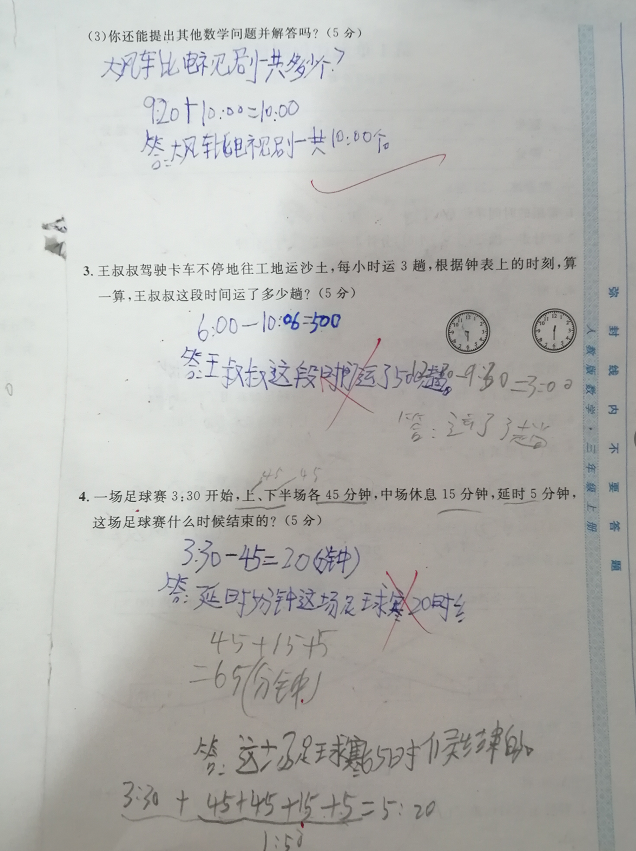 (3)你还能提出其他数学问题并解答吗?(5分)
大风车比电视剧一共多少个?
9:20+10:00=10:00
答:大风车比电视剧一共10:00个。
3.王叔叔驾驶卡车不停地往工地运沙土,每小时运3趟,根据钟表上的时刻,算
一算,王叔叔这段时间运了多少趟?(5分)
6:00-10:06=500
答:王叔叔这段时间运了500趟。
-9:30=3:00
答:运了3趟
45 45
4.一场足球赛3:30开始,上、下半场各45分钟,中场休息15分钟,延时5分钟,
这场足球赛什么时候结束的?(5分)
3:30-45=20(分钟)
答:延时5分钟这场足球赛20时
45+15+5
=65(分钟)
答:这场足球赛65时候结束的。
3:30+45+45+15+5=5:20
1:50
弥封线内不要答题
人教版数学·三年级上册